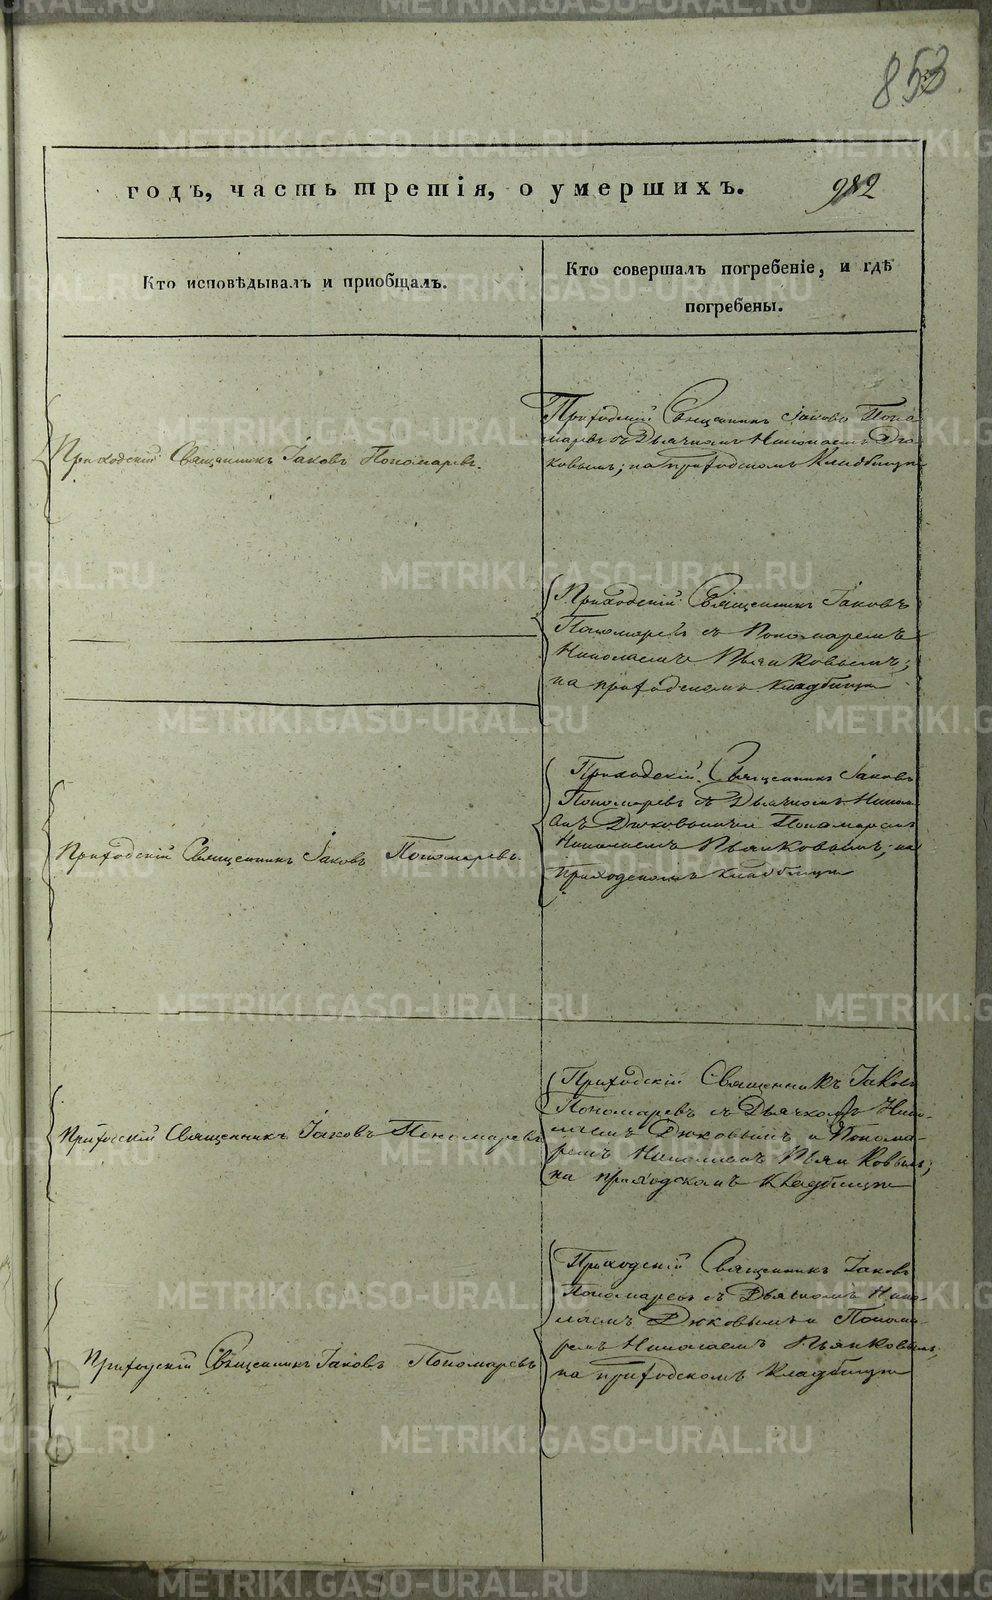 853
годъ, часть третія, о умершихъ. 982
Кто исповѣдывалъ и приобщалъ.
Кто совершалъ погребеніе, и гдѣ
погребены.
Приходскій Священникъ Іаковъ Пономаревъ.
Приходскій Священникъ Іаковъ Поно-
маревъ съ Дьячкомъ Николаемъ Дю-
ковымъ; на приходскомъ кладбищѣ
Приходскій Священникъ Іаковъ
Пономаревъ съ Пономаремъ
Николаемъ Пьянковымъ;
на приходскомъ кладбищѣ
Приходскій Священникъ Іаковъ Пономаревъ.
Приходскій Священникъ Іаковъ
Пономаревъ съ Дьячкомъ Никола-
емъ Дюковымъ и Пономаремъ
Николаемъ Пьянковымъ; на
приходскомъ кладбищѣ
Приходскій Священникъ Іаковъ Пономаревъ
Приходскій Священникъ Іаковъ
Пономаревъ съ Дьячкомъ Нико-
лаемъ Дюковымъ и Понома-
ремъ Николаемъ Пьянковымъ;
на приходскомъ кладбищѣ
Приходскій Священникъ Іаковъ Пономаревъ
Приходскій Священникъ Іаковъ
Пономаревъ съ Дьячкомъ Нико-
лаемъ Дюковымъ и Понома-
ремъ Николаемъ Пьянковымъ,
на приходскомъ кладбищѣ
METRIKI.GASO-URAL.RU